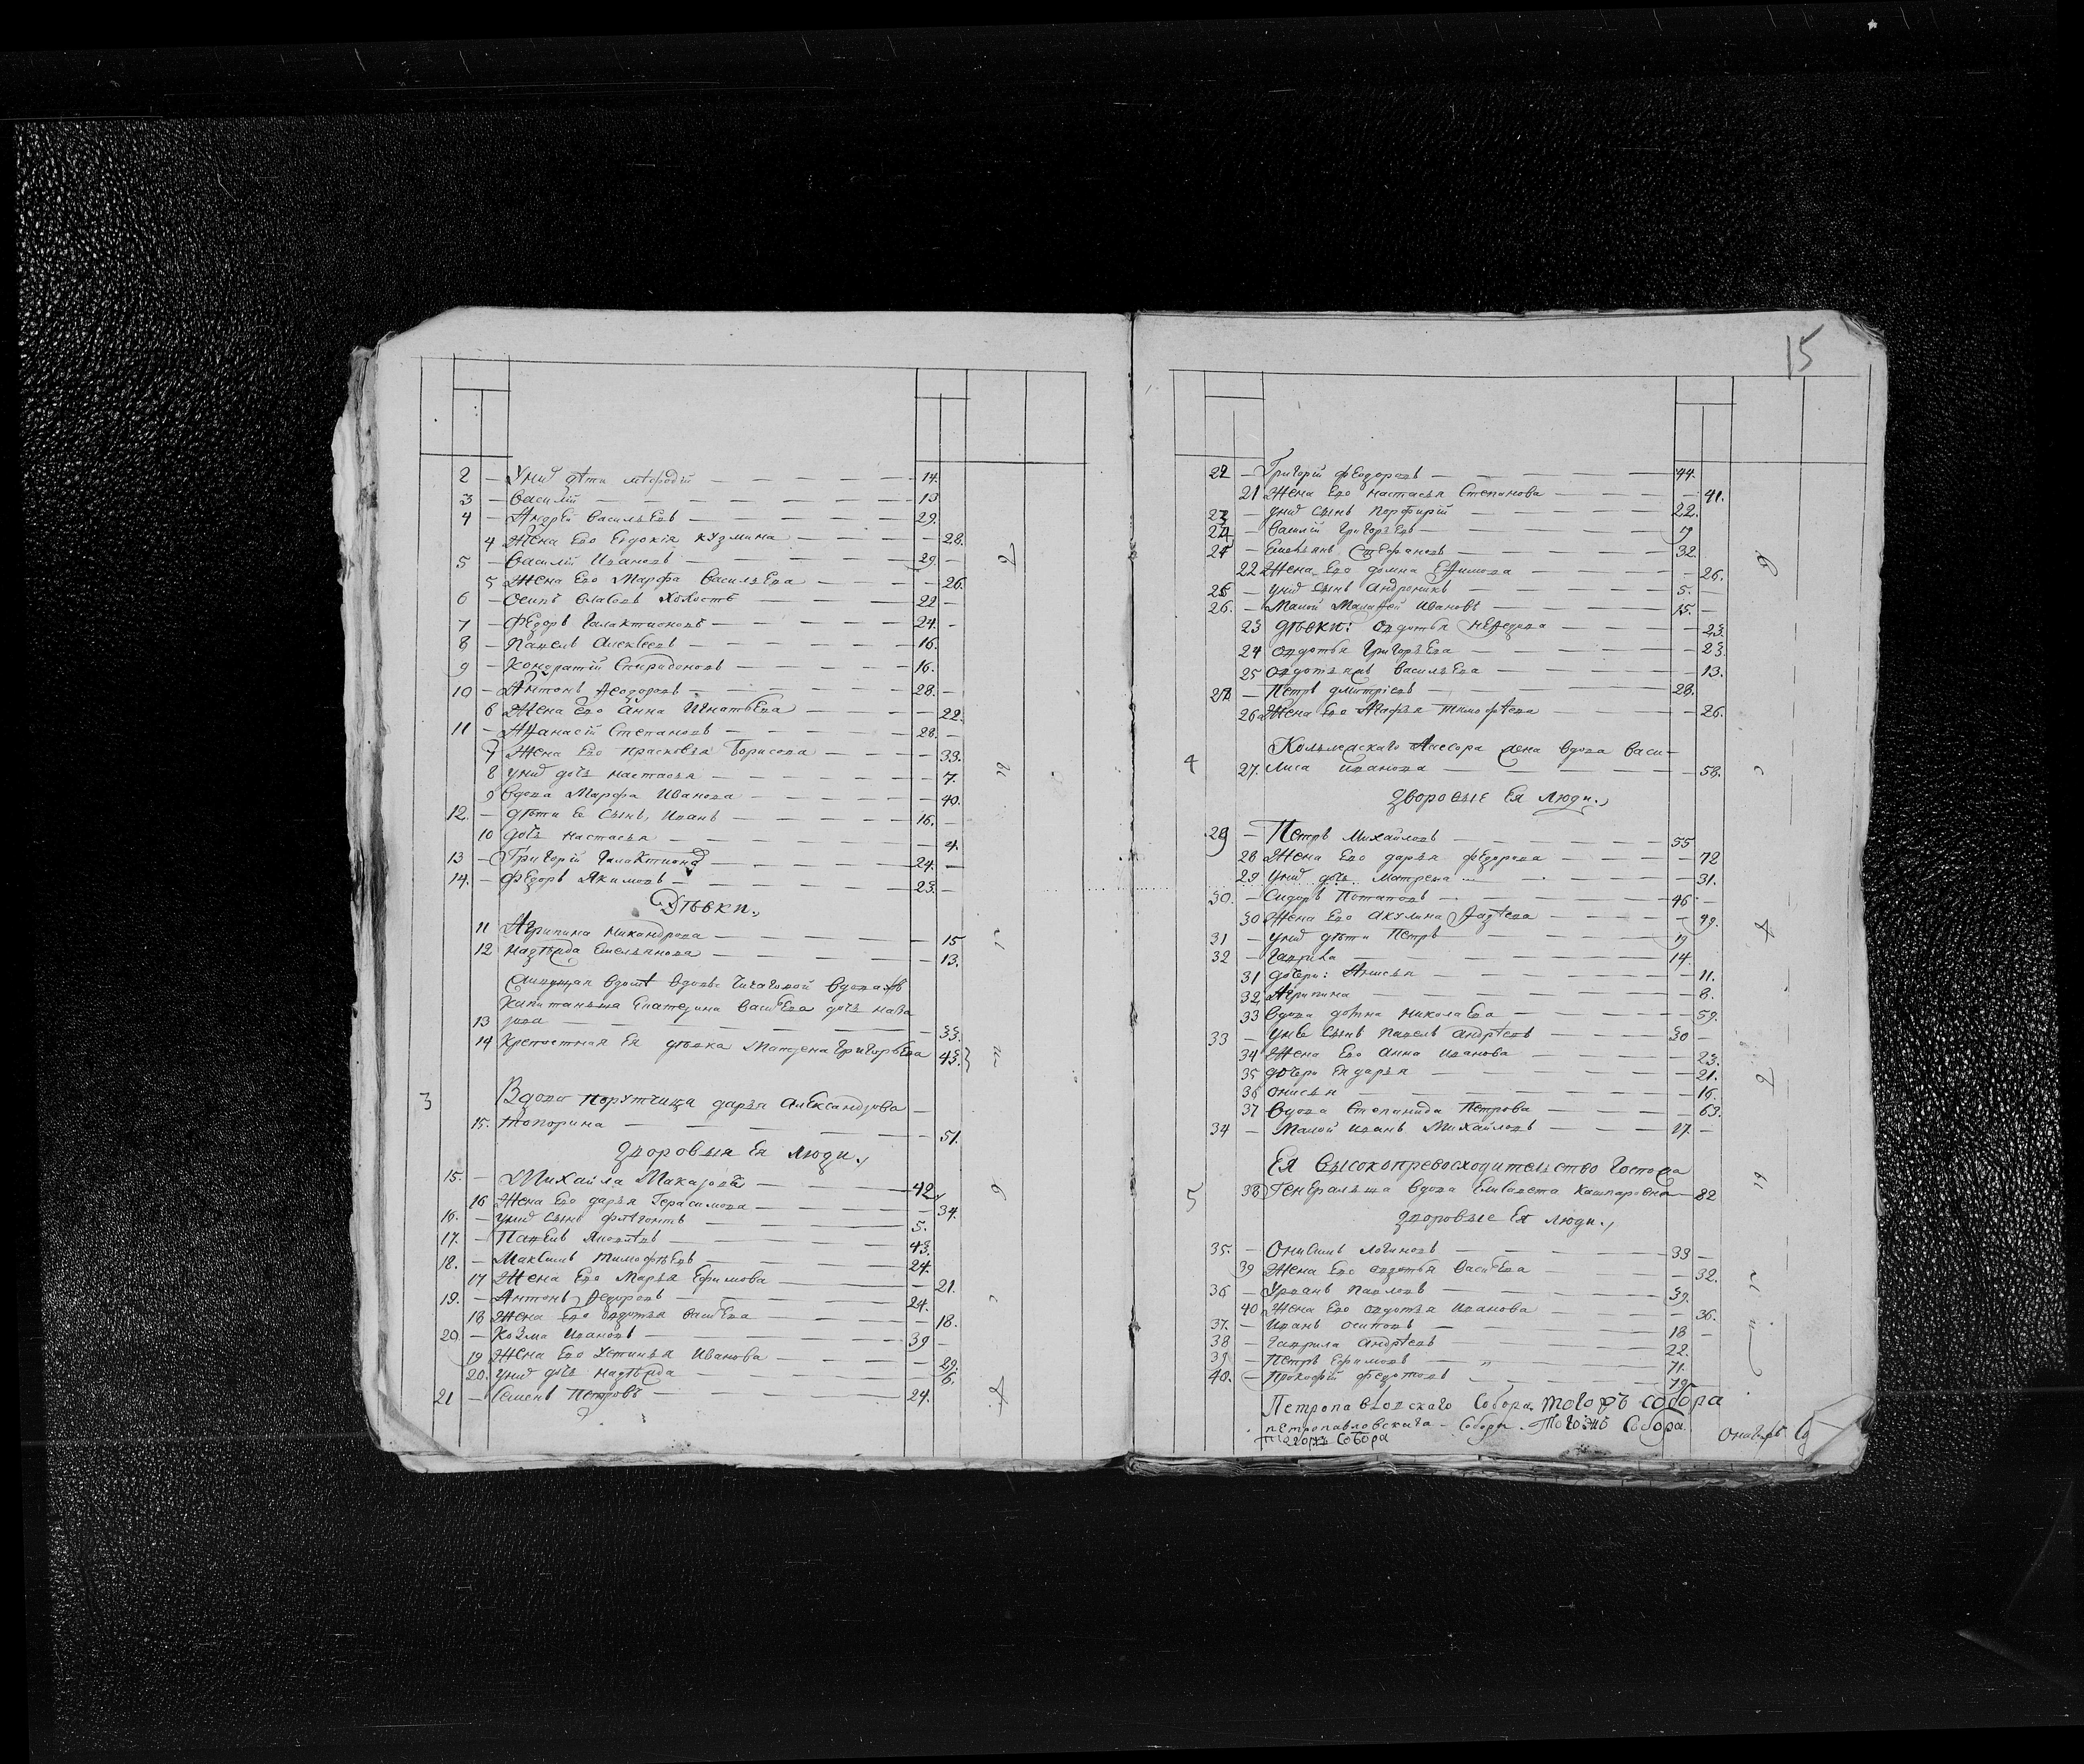 2 — У нихъ дѣти Мефодій — 14.
3 — Василій — 13
4 — Андрей Васильевъ — 29.
4 Жена Его Евдокія Кузмина — 28.
5 — Василій Ивановъ — 29. —
5 Жена Его Марфа Васильева — 26.
6 — Осипъ Власовъ Холостъ — 22 —
7 — Федоръ Галактионовъ — 24. —
8 — Павелъ Алексѣевъ — 16.
9 — Кондратій Спиридоновъ — 16.
10 — Антонъ Ѳеодоровъ — 28. —
6 Жена Его Анна Игнатьева — 22.
11 — Афанасій Степановъ — 28. —
7 Жена Его Прасковья Борисова — 33.
8 У нихъ дочь Настасья — 7.
9 Вдова Марфа Иванова — 40.
12. — Дѣти Ее Сынъ, Иванъ — 16. —
10 Дочь Настасья — 4.
13 — Григорій Галактионовъ — 24. —
14. — Федоръ Якимовъ — 23. —
Дѣвки.,
11 Агрипина Никандрова — 15
12 Надѣжда Емельянова — 13.
вдовы Чичаговой вдова
Капитанша Екатерина Васильева дочь
13 — 33.
14 Крепостная Ея дѣвка Матрена Григорьева 43.
3 Вдова порутчица Дарья Александрова —
15. Топорина — 51.
Дворовыя Ея люди.,
15. — Михайла Макаровъ — 42.
16 Жена Его Дарья Герасимова — 34.
16. — У нихъ сынъ — 5.
17. — Павелъ Яковлевъ — 43.
18. — Максимъ Тимофѣевъ — 24.
17 Жена Его Марья Ефимова — 21.
19. — Антонъ Ѳедоровъ — 24.
18 Жена Его Авдотья Васильева — 18.
20. — Козма Ивановъ — 39 —
19 Жена Его Устинья Иванова — 29.
20. У нихъ дочь Надѣжда — 6.
21 — Семенъ Петровъ — 24.
15
22 — Григорій Феодоровъ — 44.
21 Жена Его Настасья Степанова — 41.
23 — У нихъ сынъ Порфирій — 22.
24 — Василій Григорьевъ — 9
— Емельянъ Стефановъ — 32
22 Жена Его Домна Ефимова — 26.
— У нихъ сынъ Андроникъ — 5. —
26. — Малой Матфей Ивановъ — 15. —
23 Дѣвки: Авдотья — 23.
24 Авдотья Григорьева — 23.
25 Авдотья Васильева — 13.
— Петръ Дмитріевъ — 28.
26 Жена Его Тимофѣева — 26.
4 Колежскаго Асесора жена вдова Васи-
27. лиса Иванова — 58.
Дворовые Ея люди.,
29 — Петръ Михайловъ — 55
28 Жена Его Дарья Федорова — 72
29 У нихъ дочь Матрена — 31.
30. — Сидоръ Потаповъ — 46. —
30 Жена Его Акулина Фадѣева — 49.
31 — У нихъ дѣти Петръ — 19
32 — Гаврила — 14.
31 дочери: Анисья — 11.
32 Агрипина — 8.
33 Вдова Домна Николаева — 59.
33 — У нее сынъ Павелъ Андрѣевъ — 30 —
34 Жена Его Анна Иванова — 23.
35 дочери Ея Дарья — 21.
36 Анисья — 16.
37 Вдова Степанида Петрова — 63.
34 — Малой Иванъ Михайловъ — 17. —
Ея Высокопревосходительство Госпожа
5 38 Генеральша вдова Елисавета Кашпаровна — 82
Дворовые Ея люди.,
35. — Онисимъ Логиновъ — 33 —
39 Жена Его Авдотья Васильева — 32.
36 — Ульянъ Павловъ — 39.
40 Жена Его Авдотья Иванова — 36.
37. — Иванъ Осиповъ — 18 —
38 — Гаврила Андрѣевъ — 22.
39 — Петръ Ефимовъ — 71.
40. — Прокофій Федотовъ — 19
Петропавловскаго Собора тогожъ собора
петропавловскаго — Собора. Тогожъ Собора
тогожъ Собора